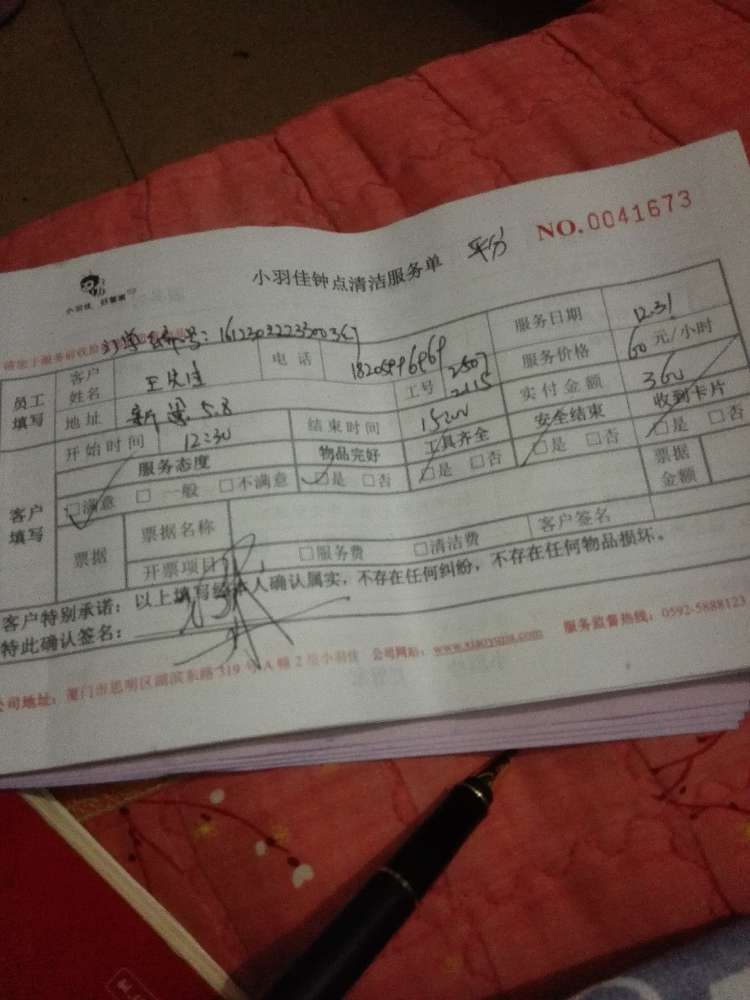 NO.0041673
小羽佳钟点清洁服务单 平分
小羽佳，好管家
订单编号：161230322330036
员工填写 客户姓名 王先生 电话 工号 2507 2115 服务日期 12.31
地址 服务价格 60元/小时
开始时间 12:30 结束时间 15:00 实付金额 360
客户填写 服务态度 物品完好 工具齐全 安全结束 收到卡片
□满意 □一般 □不满意 □是 □否 □是 □否 □是 □否 □是 □否
票据 票据名称 票据金额
开票项目 □服务费 □清洁费 客户签名
客户特别承诺：以上填写经本人确认属实，不存在任何纠纷，不存在任何物品损坏。
特此确认签名：
公司地址：厦门市思明区湖滨东路319号A幢2层小羽佳 公司网站：www.xiaoyujia.com 服务监督热线：0592-5888123